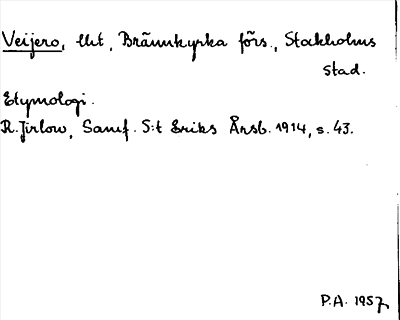 Veijero, lht, Brännkyrka förs., Stockholms
stad.
Etymologi.
R. Jirlow, Samf. S:t Eriks Årsb. 1914, s. 43.
P.A. 1957